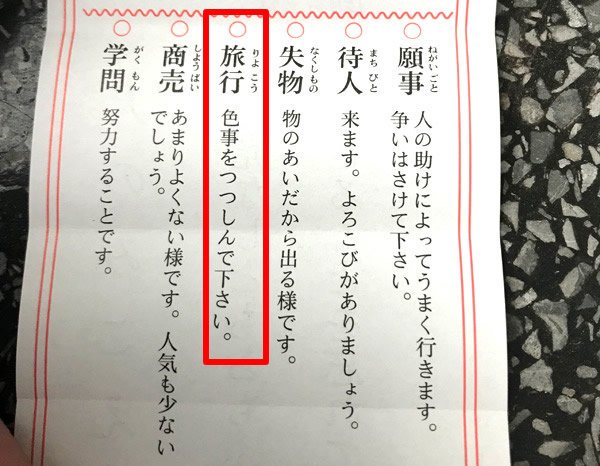 願事 ねがいごと
人の助けによってうまく行きます。
争いはさけて下さい。
待人 まちびと
来ます。よろこびがありましょう。
失物 なくしもの
物のあいだから出る様です。
旅行 りよこう
色事をつつしんで下さい。
商売 しようばい
あまりよくない様です。人気も少ない
でしょう。
学問 がくもん
努力することです。